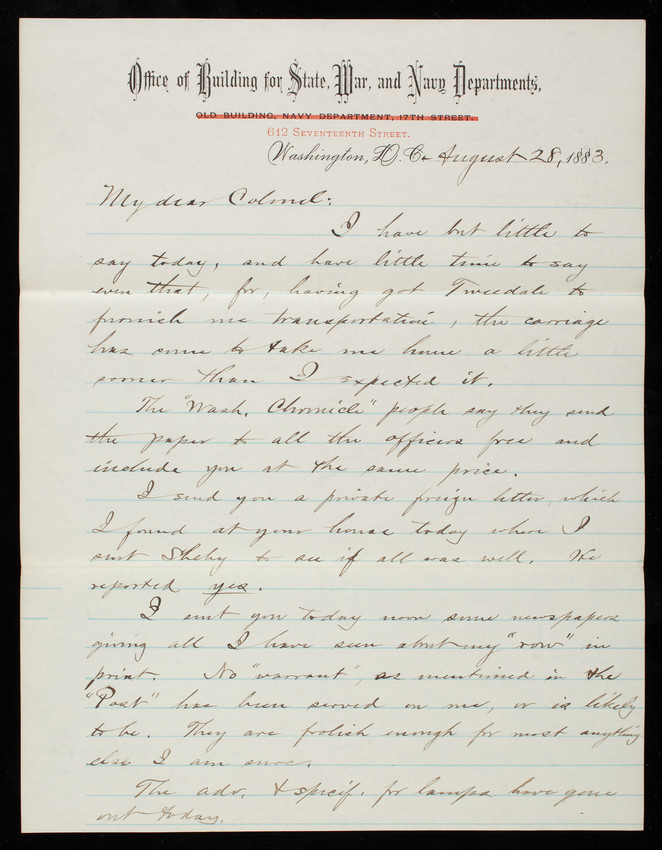 Office of Building for State, War, and Navy Departments,
OLD BUILDING, NAVY DEPARTMENT, 17TH STREET.
612 SEVENTEENTH STREET.
Washington, D. C. August 28, 1883.
My dear Colonel:
I have but little to
say today, and have little time to say
even that, for, having got Tweedale to
furnish me transportation, the carriage
has come to take me home a little
sooner than I expected it.
The "Wash. Chronicle" people say they send
the paper to all the officers free and
include you at the same price.
I send you a private foreign letter which
I found at your house today where I
sent Shehy to see if all was well. He
reported yes.
I sent you today noon some newspapers
giving all I have seen about my "row" in
print. No "warrant", as mentioned in the
"Post" has been served on me, or is likely
to be. They are foolish enough for most anything
else I am sure.
The adv. & specif. for lamps have gone
out today.